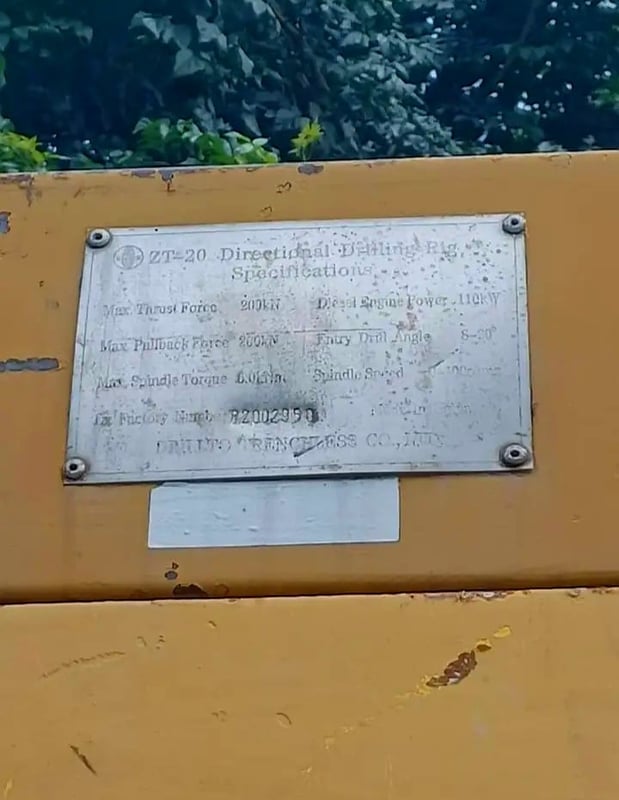 ZT-20 Directional Drilling Rig
Specifications
Max. Thrust Force 200kN Diesel Engine Power 110kW
Max. Pullback Force 200kN Entry Drill Angle 8-20°
Max. Spindle Torque Spindle Speed
Ex Factory Number
DRILLTO TRENCHLESS CO.,LTD.